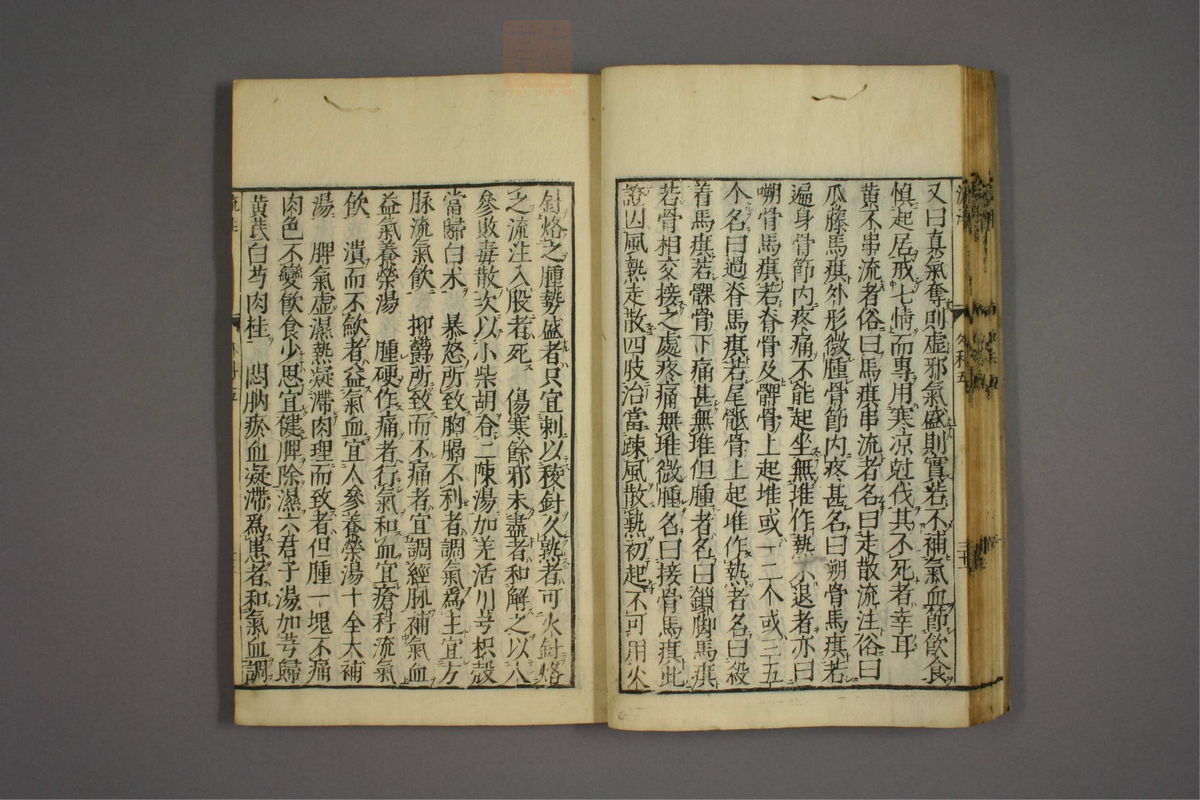 又曰真氣奪則虚邪氣盛則實若不補氣血節飲食
慎起居戒七情而專用寒凉尅伐其不死者幸耳
黄不串流者俗曰馬㾾串流者名曰走散流注俗曰
瓜藤馬㾾外形微腫骨節内疼甚名曰朔骨馬㾾若
遍身骨節内疼痛不能起坐無堆作熱不退者亦曰
嗍骨馬㾾若脊骨及髀骨上起堆或一二不或三五
个名曰過脊馬㾾若尾骶骨上起堆作熱者名曰殺
着馬㾾若髁骨下痛甚無堆但腫者名曰鎖脚馬㾾
若骨相交接之處疼痛無堆微腫名曰接骨馬㾾此
證因風熱走散四肢治當疎風散熱初起不可用火
針烙之腫勢盛者只宜刺以稜針久熟者可火針烙
之流注入股者死 傷寒餘邪未盡者和解之以人
參敗毒散次以小柴胡合二陳湯加羌活川芎枳殼
當歸白朮 暴怒所致胸膈不利者調氣爲主宜方
脉流氣飲 抑欝所致而不痛者宜調經脉補氣血
益氣養榮湯 腫硬作痛者行氣和血宜瘡科流氣
飲 潰而不歛者益氣血宜人參養榮湯十全大補
湯 脾氣虚濕熱凝滯肉理而致者但腫一塊不痛
肉色不變飲食少思宜健脾除濕六君子湯加芎歸
黄芪白芍肉桂 閃肭瘀血凝滯爲患者和氣血調